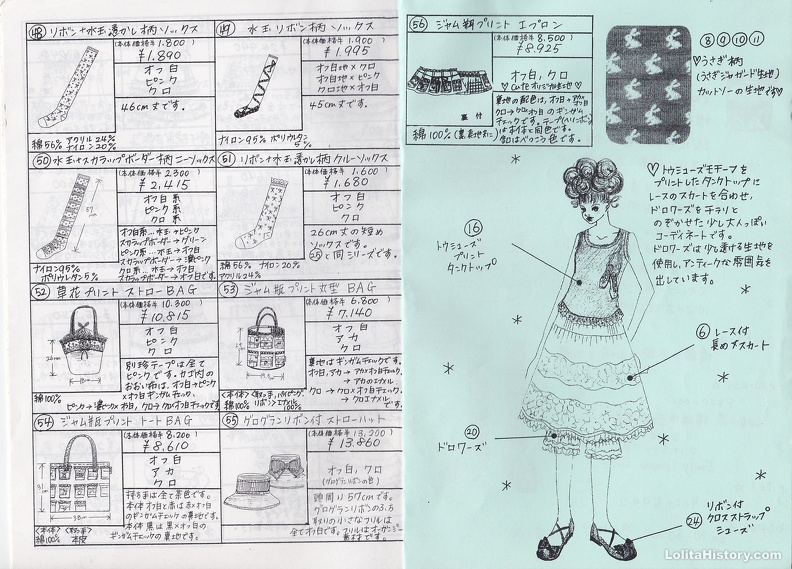 ㊽ リボン+水玉透かし柄ソックス
(本体価格¥1.800)
¥1.890
オフ白
ピンク
クロ
46cm丈です。
綿56% アクリル24%
ナイロン20%
㊾ 水玉リボン柄ソックス
(本体価格¥1.900)
¥1.995
オフ白地×クロ
オフ白地×ピンク
クロ地×オフ白
45cm丈です。
ナイロン95% ポリウレタン
5%
㊿ 水玉+スカラップボーダー柄ニーソックス
(本体価格¥2.300)
¥2,415
オフ白系
ピンク系
クロ系
オフ白系…水玉→ピンク
スカラップボーダー→グリーン
ピンク系…水玉→オフ白
スカラップボーダー→濃ピンク
クロ系…水玉→オフ白
スカラップボーダー→オフ白です。
57cm
ナイロン95%
ポリウレタン5%
51 リボン+水玉透かし柄クルーソックス
(本体価格¥1.600)
¥1.680
オフ白
ピンク
クロ
26cm丈の短め
ソックスです。
と同シリーズです。
綿56% ナイロン20%
アクリル24%
52 草花プリント ストローBAG
(本体価格¥10.300)
¥10.815
オフ白
ピンク
クロ
別珍テープは全て
ピンクです。カゴ内の
おおい布は、オフ白→ピンク
×オフ白ギンガムチェック、
ピンク→濃ピンク×オフ白、クロ→クロ×オフ白チェックです
綿100%
53 ジャム瓶プリント丸型BAG
(本体価格¥6.800)
¥7.140
オフ白
アカ
クロ
裏地はギンガムチェックです。
オフ白、アカ→アカ×オフ白チェック、
→アカのエナメル
クロ→クロ×オフ白チェック、
→クロエナメル
です。
<本体>
綿100%
<取っ手、パイピング、
リボン>エナメル
100%
54 ジャム瓶プリント トートBAG
(本体価格¥8.200)
¥8.610
オフ白
アカ
クロ
持ち手は全て茶色です。
本体オフ白と赤は赤×オフ白
のギンガムチェックの裏地です。
本体黒は黒×オフ白
ギンガムチェックの裏地です。
<本体>
綿100%
<取っ手>
本皮
55 グログランリボン付ストローハット
(本体価格¥13,200)
¥13.860
オフ白、クロ
(グログランリボンの色)
頭周り57cmです。
グログランリボンの3.5
取りの小さなフリルは
全てオフ白です。フリルはオーガンジー
素材です。
56 ジャム瓶プリント エプロン
(本体価格¥8.500)
¥8.925
オフ白、クロ
♡cuteオリジナル生地♡
裏地の配色は、オフ白→アカ×オフ白
クロ→クロ×オフ白のギンガム
チェックです。テープ(ハリボン)
は本体と同色です。
釦はべっこう色です。
裏付
綿100%(裏表地共に)
⑧⑨⑩⑪
♡うさぎ柄
(うさぎジャガード生地)
カットソーの生地です♡
♡トウシューズモチーフを
プリントしたタンクトップに
レースのスカートを合わせ、
ドロワーズをチラリと
のぞかせた少し大人っぽい
コーディネートです。
ドロワーズは少し透ける生地を
使用し、アンティークな雰囲気を
出しています。
⑯
トウシューズ
プリント
タンクトップ
⑥ レース付
長めスカート
⑳
ドロワーズ
リボン付
㉔ クロスストラップ
シューズ
LolitaHistory.com